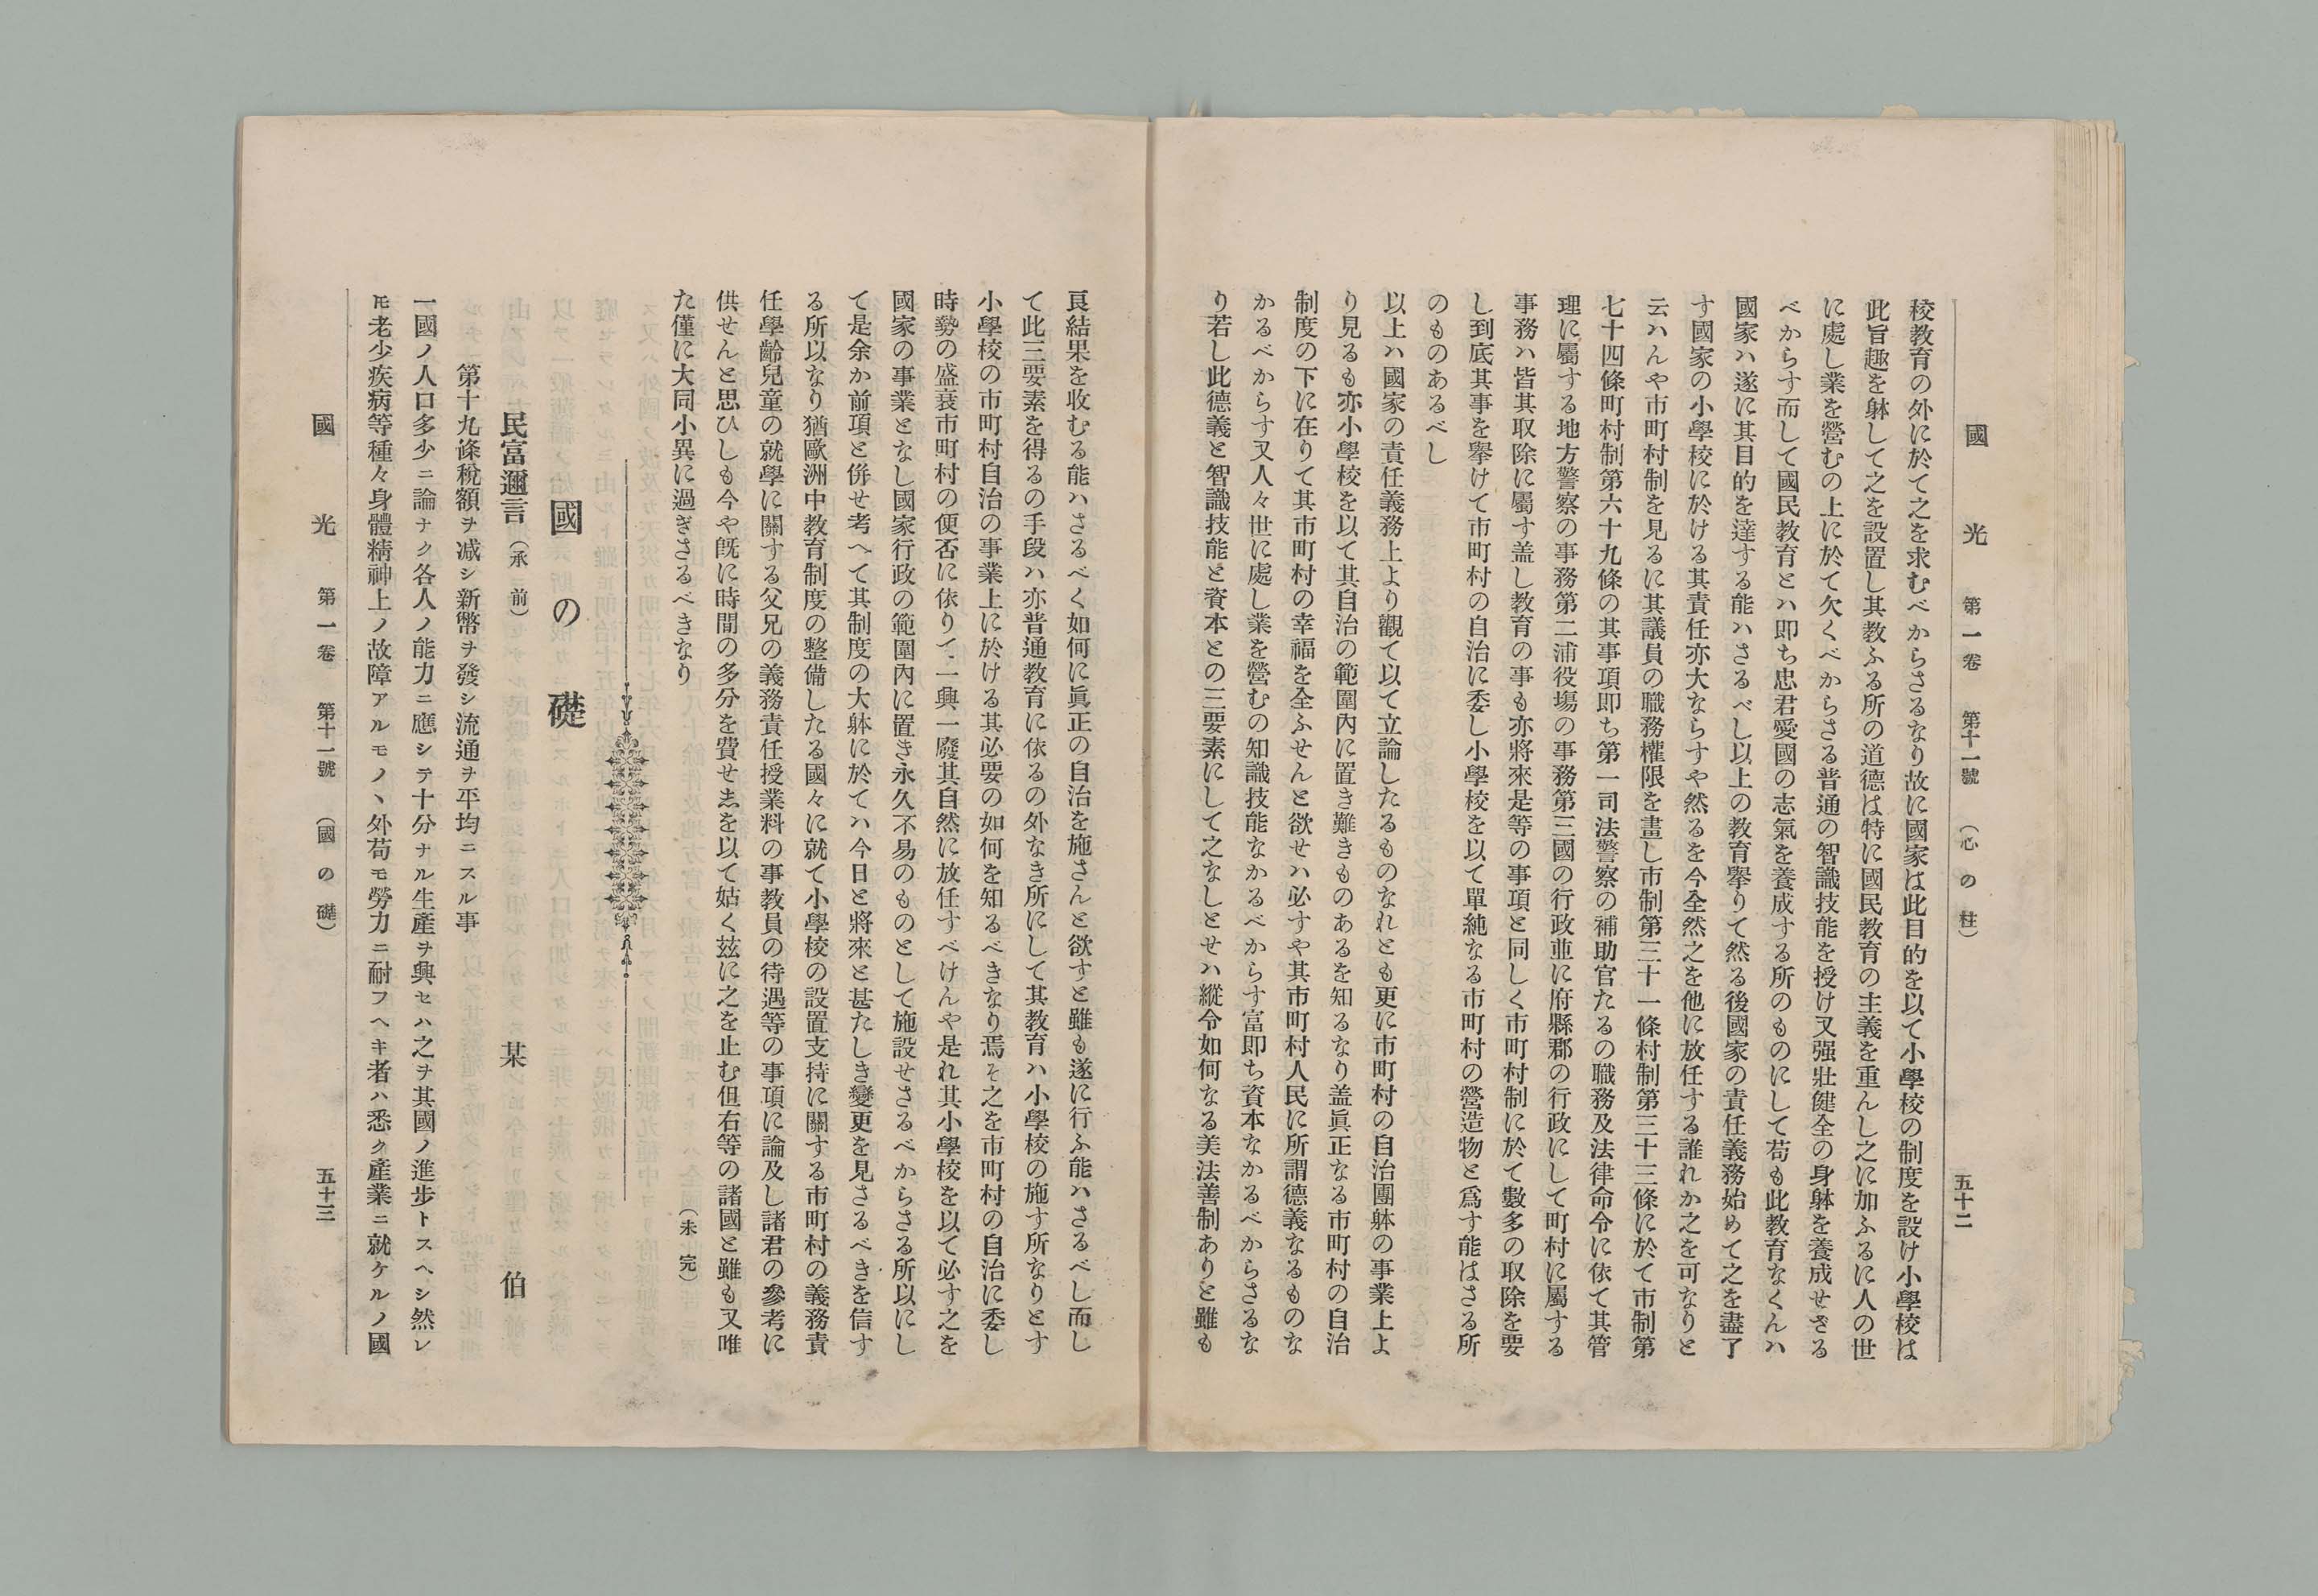 國光 第一卷 第十一號 (心の柱) 五十二
校教育の外に於て之を求むべからさるなり故に國家は此目的を以て小學校の制度を設け小學校は
此旨趣を躰して之を設置し其教ふる所の道德は特に國民教育の主義を重んし之に加ふるに人の世
に處し業を營むの上に於て欠くべからさる普通の智識技能を授け又强壯健全の身躰を養成せざる
べからす而して國民教育とハ即ち忠君愛國の志氣を養成する所のものにして苟も此教育なくんハ
國家ハ遂に其目的を達する能ハさるべし以上の教育擧りて然る後國家の責任義務始めて之を盡了
す國家の小學校に於ける其責任亦大ならすや然るを今全然之を他に放任する誰れか之を可なりと
云ハんや市町村制を見るに其議員の職務權限を畫し市制第三十一條村制第三十三條に於て市制第
七十四條町村制第六十九條の其事項即ち第一司法警察の補助官たるの職務及法律命令に依て其管
理に屬する地方警察の事務第二浦役塲の事務第三國の行政並に府縣郡の行政にして町村に屬する
事務ハ皆其取除に屬す盖し教育の事も亦將來是等の事項と同しく市町村制に於て數多の取除を要
し到底其事を擧けて市町村の自治に委し小學校を以て單純なる市町村の營造物と爲す能はさる所
のものあるべし
以上ハ國家の責任義務上より觀て以て立論したるものなれとも更に市町村の自治團躰の事業上よ
り見るも亦小學校を以て其自治の範圍內に置き難きものあるを知るなり盖眞正なる市町村の自治
制度の下に在りて其市町村の幸福を全ふせんと欲せハ必すや其市町村人民に所謂德義なるものな
かるべからす又人々世に處し業を營むの知識技能なかるべからす富即ち資本なかるべからさるな
り若し此德義と智識技能と資本との三要素にして之なしとせハ縱令如何なる美法善制ありと雖も
良結果を收むる能ハさるべく如何に眞正の自治を施さんと欲すと雖も遂に行ふ能ハさるべし而し
て此三要素を得るの手段ハ亦普通教育に依るの外なき所にして其教育ハ小學校の施す所なりとす
小學校の市町村自治の事業上に於ける其必要の如何を知るべきなり焉そ之を市町村の自治に委し
時勢の盛衰市町村の便否に依りて一興一廢其自然に放任すべけんや是れ其小學校を以て必す之を
國家の事業となし國家行政の範圍內に置き永久不易のものとして施設せさるべからさる所以にし
て是余か前項と併せ考へて其制度の大躰に於てハ今日と將來と甚たしき變更を見さるべきを信す
る所以なり猶歐洲中教育制度の整備したる國々に就て小學校の設置支持に關する市町村の義務責
任學齡兒童の就學に關する父兄の義務責任授業料の事教員の待遇等の事項に論及し諸君の參考に
供せんと思ひしも今や旣に時間の多分を費せ志を以て姑く玆に之を止む但右等の諸國と雖も又唯
た僅に大同小異に過ぎさるべきなり
(未完)
國の礎
民富邇言(承前) 某伯
第十九條稅額ヲ减シ新幣ヲ發シ流通ヲ平均ニスル事
一國ノ人口多少ニ論ナク各人ノ能力ニ應シテ十分ナル生產ヲ興セハ之ヲ其國ノ進步トスヘシ然レ
𪜈老少疾病等種々身體精神上ノ故障アルモノヽ外苟モ勞力ニ耐フヘキ者ハ悉ク產業ニ就ケルノ國
國光 第一卷 第十一號 (國の礎) 五十三